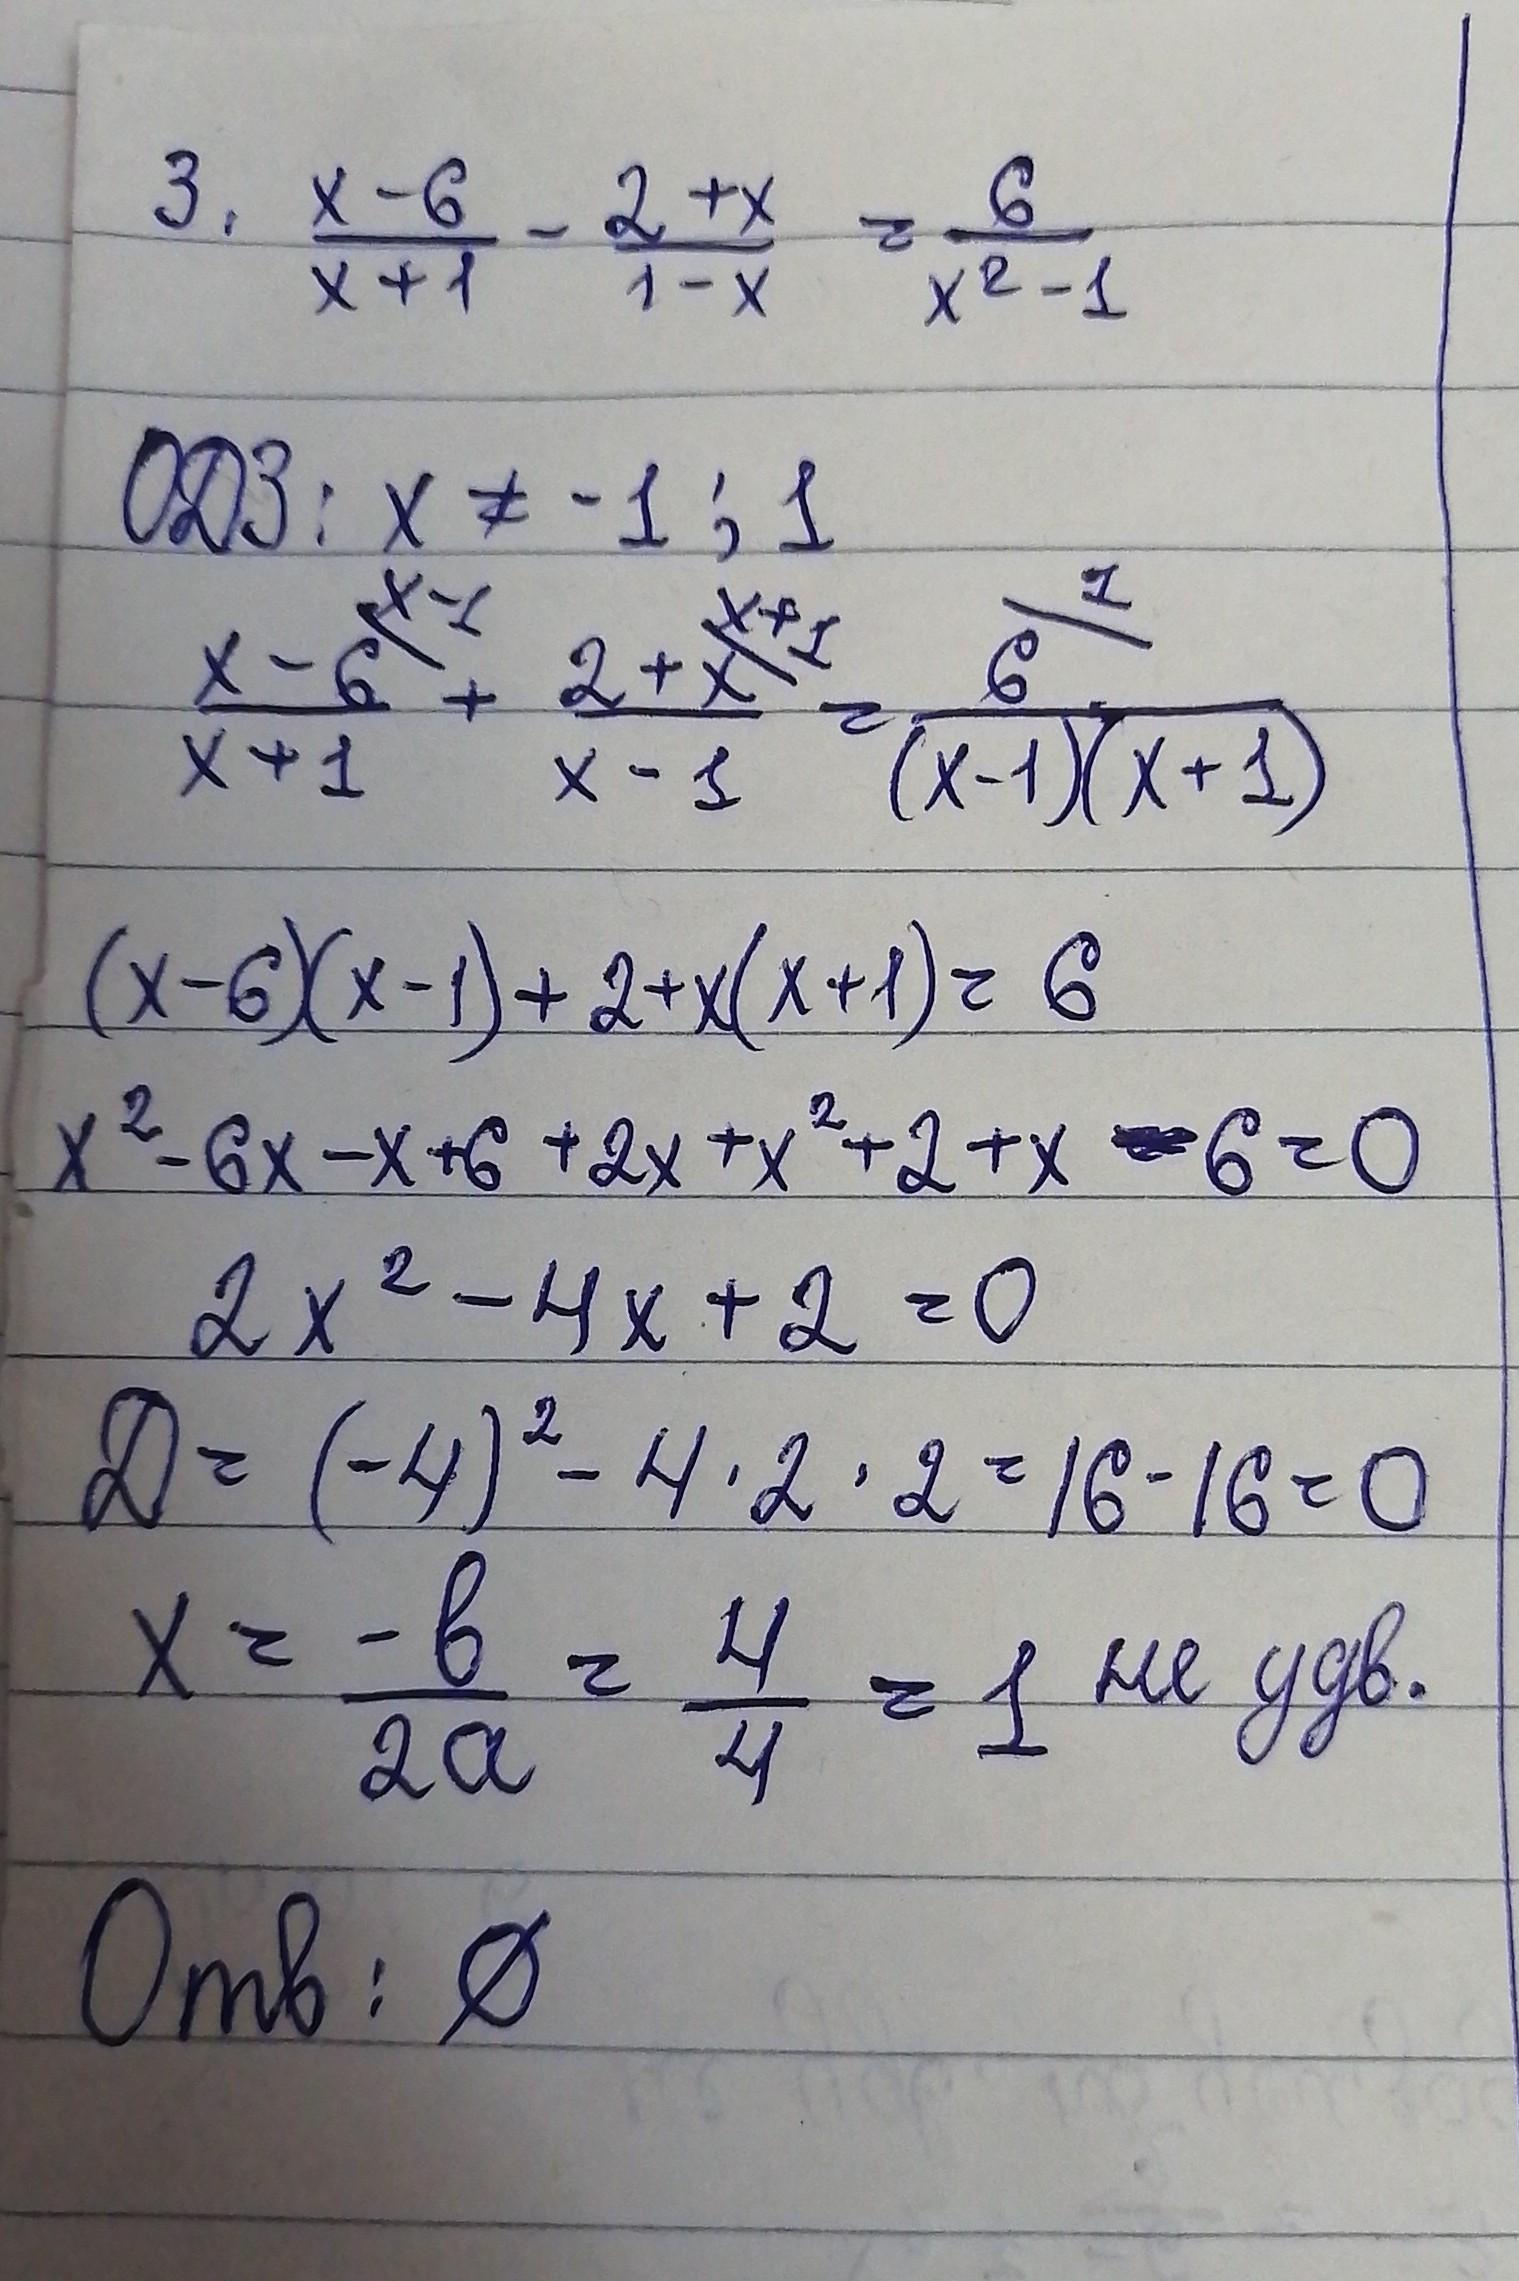 3. (x-6)/(x+1) - (2+x)/(1-x) = 6/(x²-1)
ОДЗ: x ≠ -1; 1
(x-6)/(x+1) \x-1 + (2+x)/(x-1) \x+1 = 6/((x-1)(x+1)) \1
(x-6)(x-1)+2+x(x+1)=6
x²-6x-x+6+2x+x²+2+x-6=0
2x²-4x+2=0
D=(-4)²-4·2·2=16-16=0
x = -b/2a = 4/4 = 1 не удв.
Отв: Ø